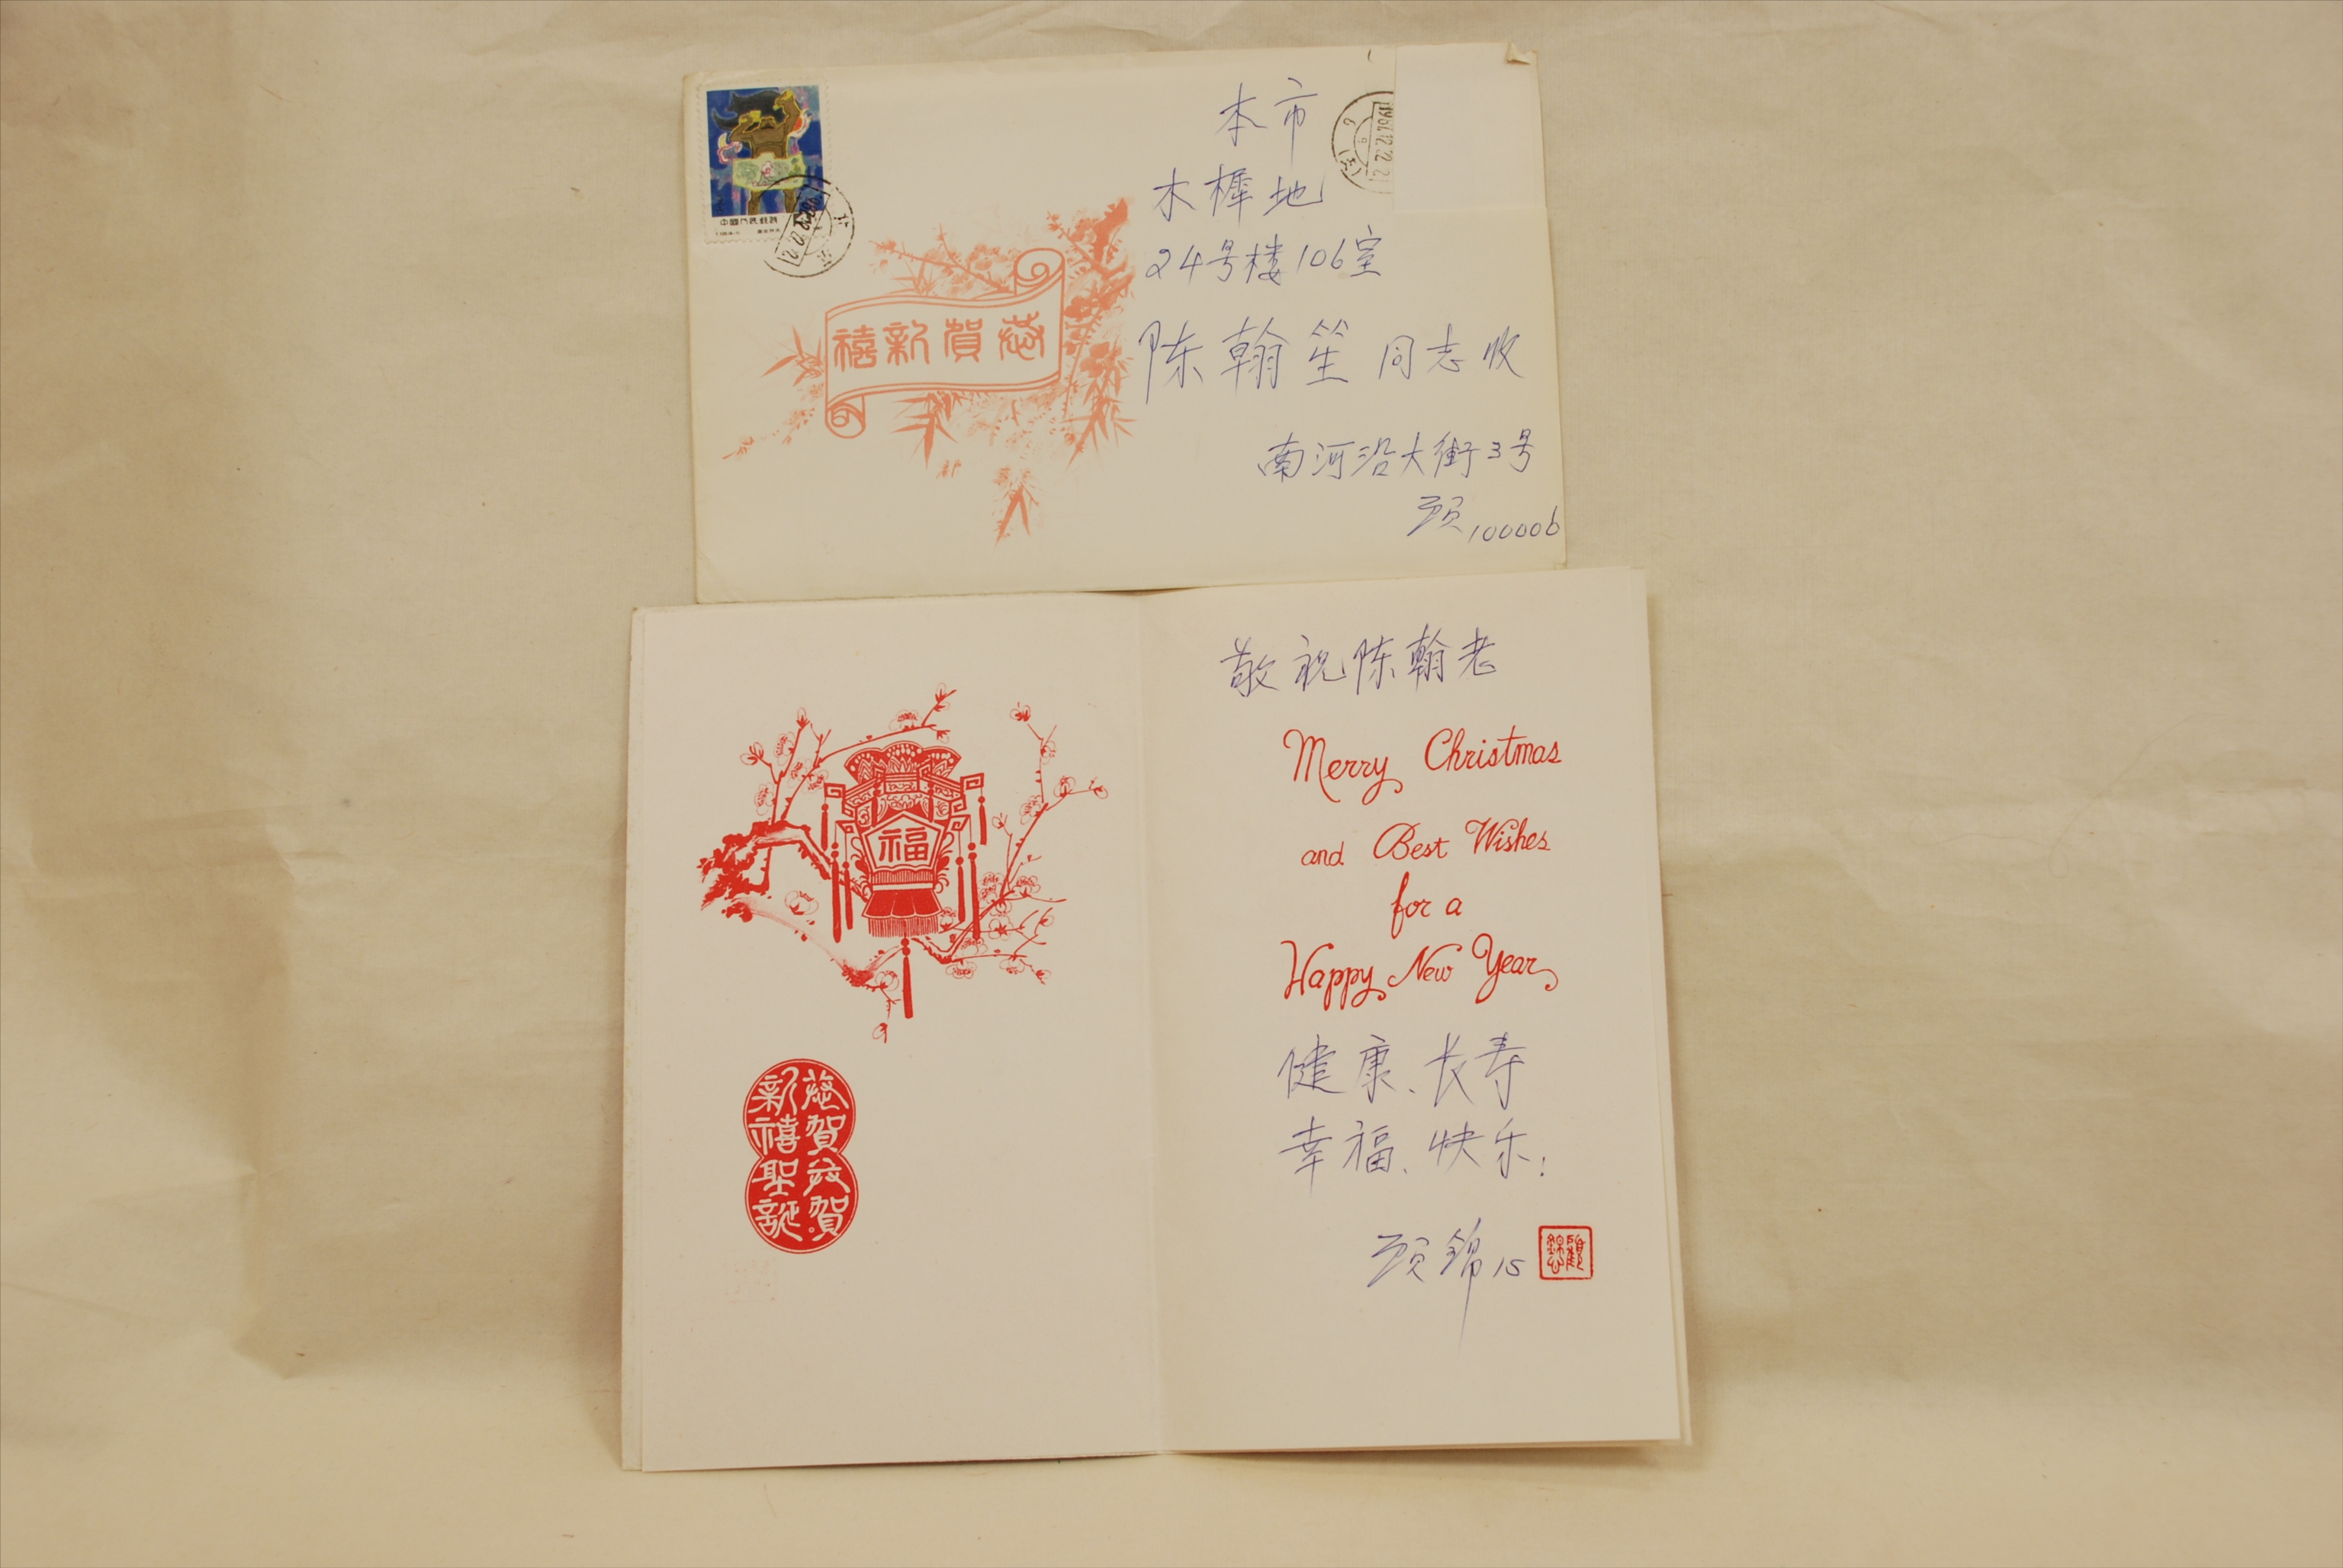 中國人民邮政
本市
木樨地
24号楼106室
陈翰笙同志收
南河沿大街3号
顾 100006
恭賀新禧
敬祝陈翰老
Merry Christmas
and Best Wishes
for a
Happy New Year
健康、长寿
幸福、快乐!
顾锦
福
恭賀
新禧
並賀
聖誕